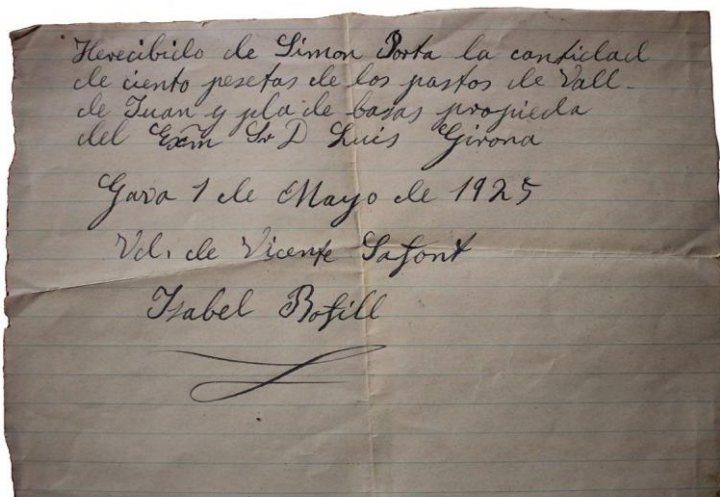 Herecibido de Simon Porta la cantidad
de ciento pesetas de los pastos de Vall-
de Juan y pla de basas propieda
del Exm Sr D Luis Girona
Gava 1 de Mayo de 1925
Vd. de Vicente Safont
Isabel Bofill